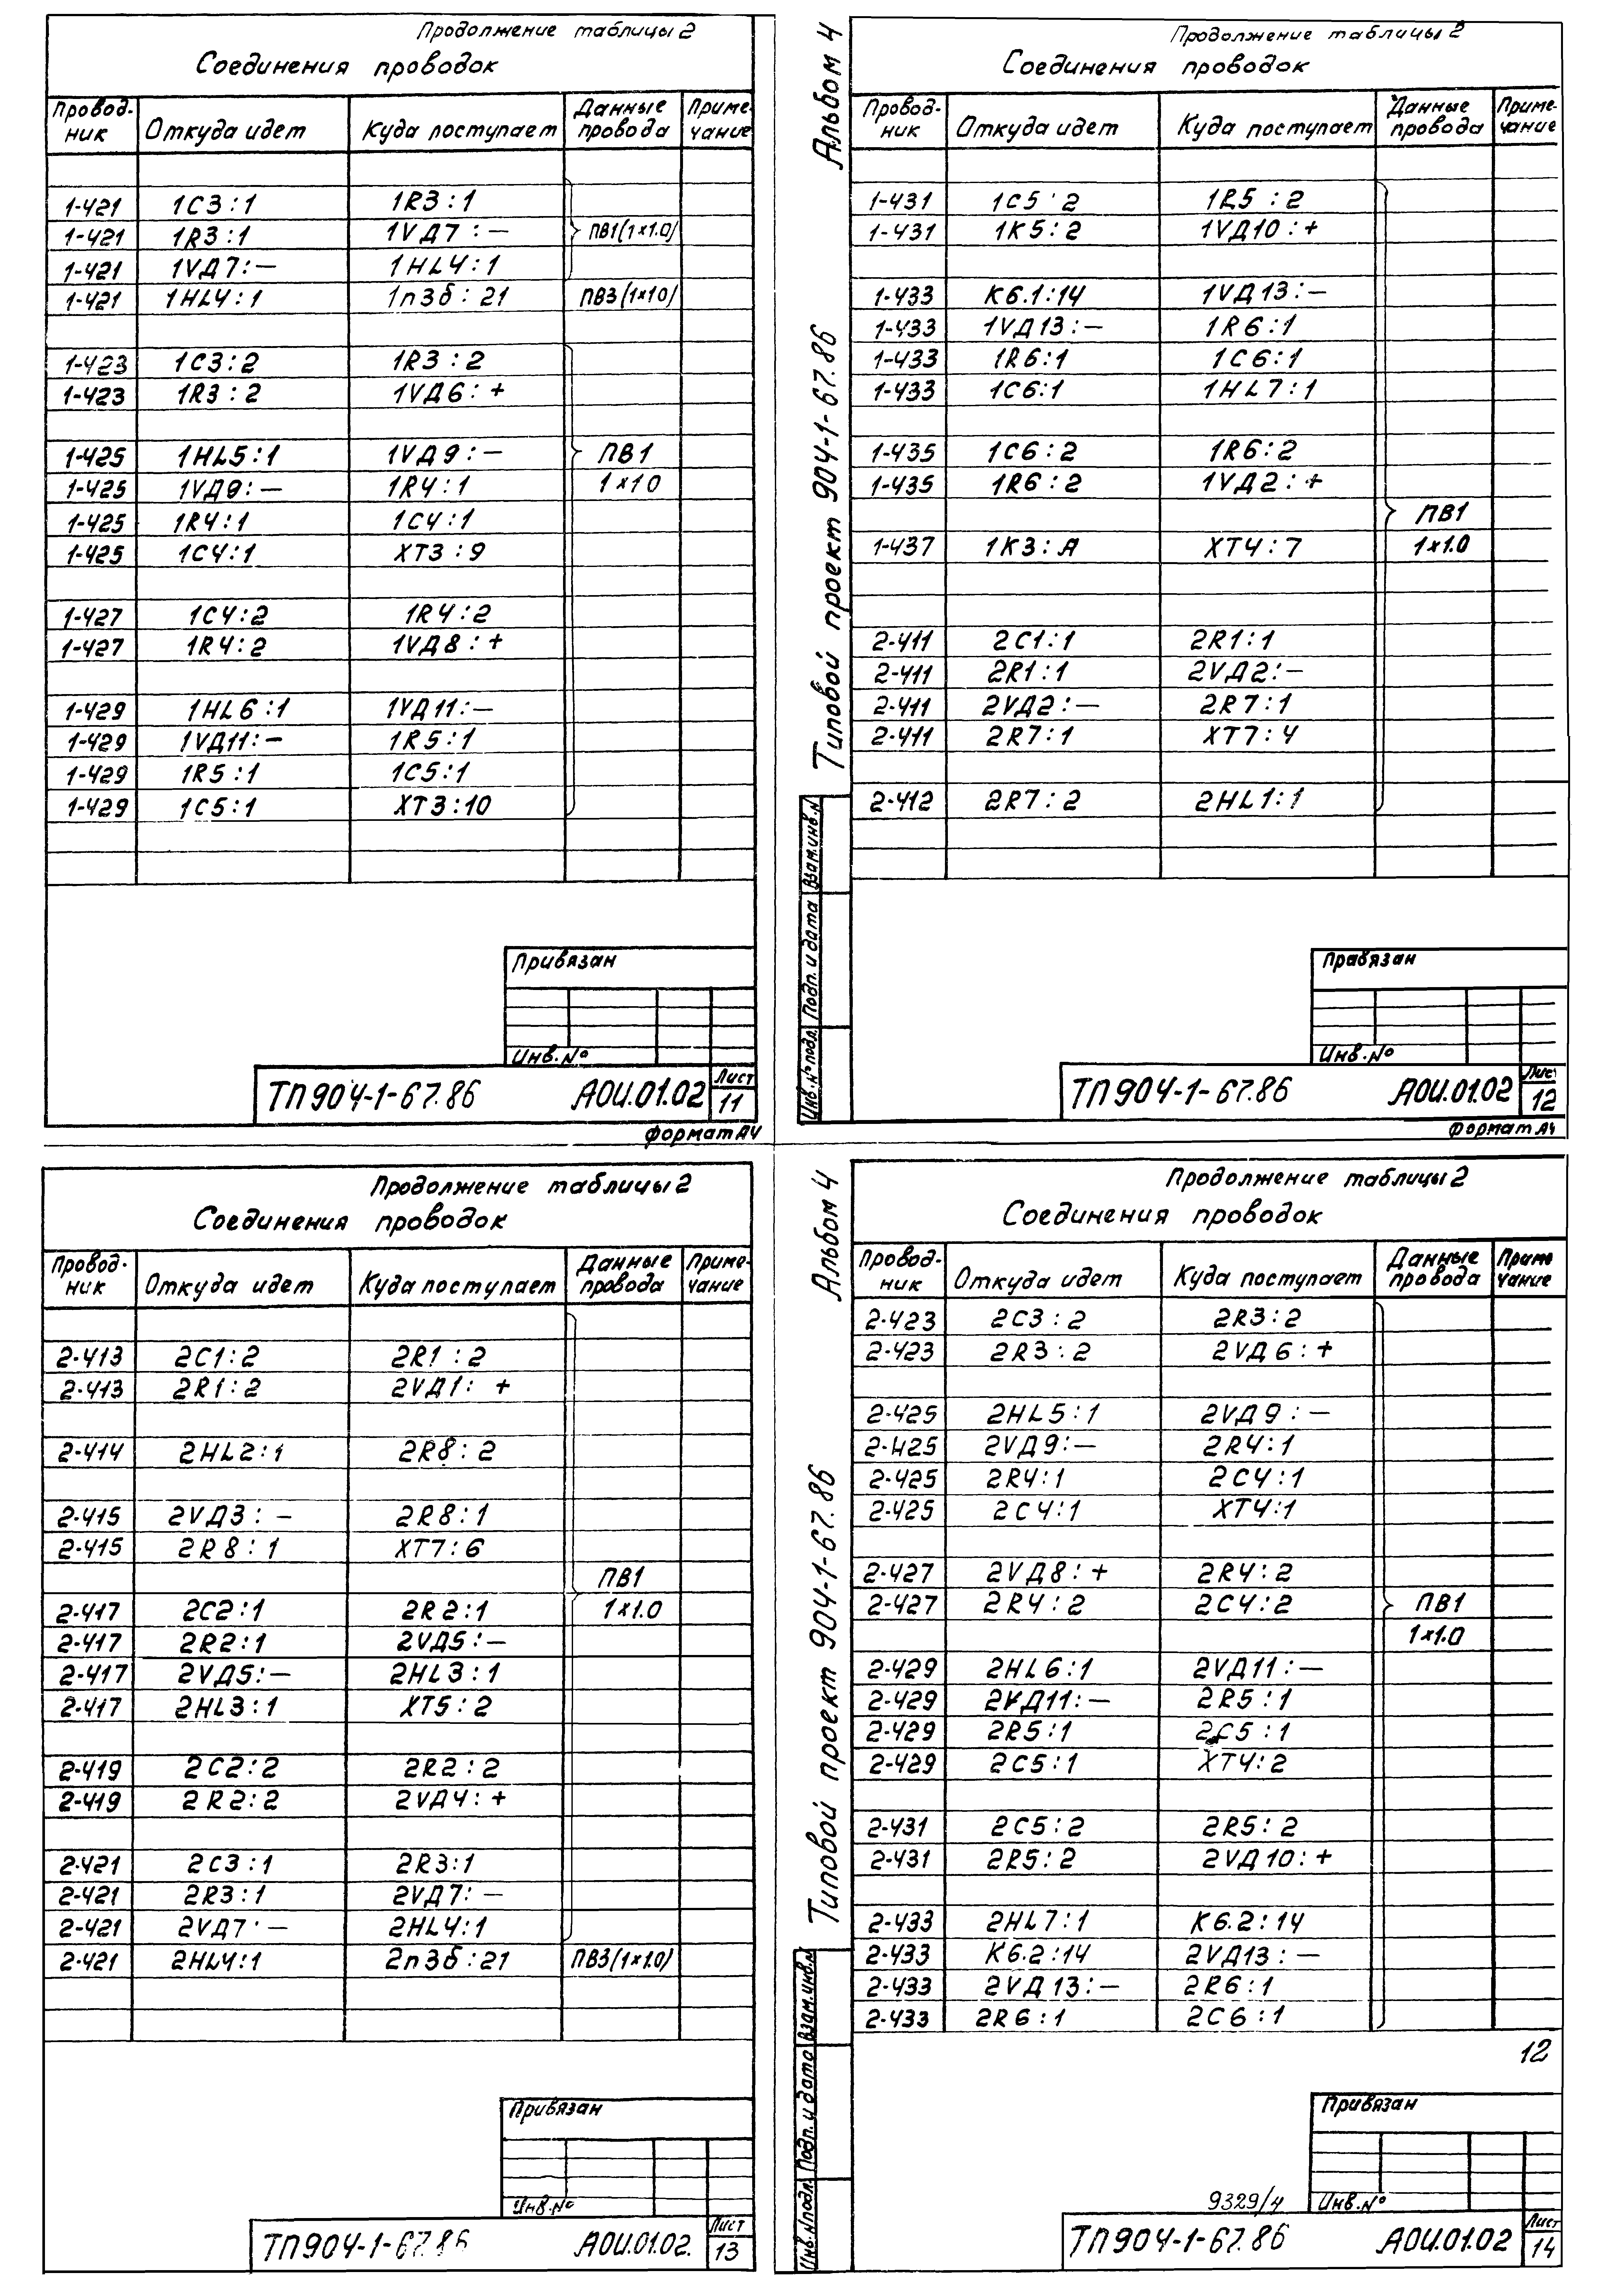 Продолжение таблицы 2
Соединения проводок
Провод-ник Откуда идет Куда поступает Данные провода Приме-чание
1-421 1С3:1 1R3:1
1-421 1R3:1 1VД7:— ПВ1(1×1.0)
1-421 1VД7:— 1HL4:1
1-421 1HL4:1 1п3б:21 ПВ3(1×1.0)
1-423 1С3:2 1R3:2
1-423 1R3:2 1VД6:+
1-425 1HL5:1 1VД9:— ПВ1
1-425 1VД9:— 1R4:1 1×1.0
1-425 1R4:1 1С4:1
1-425 1С4:1 ХТ3:9
1-427 1С4:2 1R4:2
1-427 1R4:2 1VД8:+
1-429 1HL6:1 1VД11:—
1-429 1VД11:— 1R5:1
1-429 1R5:1 1С5:1
1-429 1С5:1 ХТ3:10
Привязан
Инв.№
ТП904-1-67.86 АОИ.01.02 Лист 11
Формат А4
Альбом 4
Типовой проект 904-1-67.86
Инв.№ подл. Подп. и дата Взам.инв.№
Продолжение таблицы 2
Соединения проводок
Провод-ник Откуда идет Куда поступает Данные провода Приме-чание
1-431 1С5:2 1R5:2
1-431 1К5:2 1VД10:+
1-433 К6.1:14 1VД13:—
1-433 1VД13:— 1R6:1
1-433 1R6:1 1С6:1
1-433 1С6:1 1HL7:1
1-435 1С6:2 1R6:2
1-435 1R6:2 1VД2:+
ПВ1
1-437 1К3:А ХТ4:7 1×1.0
2-411 2С1:1 2R1:1
2-411 2R1:1 2VД2:—
2-411 2VД2:— 2R7:1
2-411 2R7:1 ХТ7:4
2-412 2R7:2 2HL1:1
Привязан
Инв.№
ТП904-1-67.86 АОИ.01.02 Лист 12
Формат А4
Продолжение таблицы 2
Соединения проводок
Провод-ник Откуда идет Куда поступает Данные провода Приме-чание
2-413 2С1:2 2R1:2
2-413 2R1:2 2VД1:+
2-414 2HL2:1 2R8:2
2-415 2VД3:— 2R8:1
2-415 2R8:1 ХТ7:6
ПВ1
2-417 2С2:1 2R2:1 1×1.0
2-417 2R2:1 2VД5:—
2-417 2VД5:— 2HL3:1
2-417 2HL3:1 ХТ5:2
2-419 2С2:2 2R2:2
2-419 2R2:2 2VД4:+
2-421 2С3:1 2R3:1
2-421 2R3:1 2VД7:—
2-421 2VД7:— 2HL4:1
2-421 2HL4:1 2п3б:21 ПВ3(1×1.0)
Привязан
Инв.№
ТП904-1-67.86 АОИ.01.02. Лист 13
Альбом 4
Типовой проект 904-1-67.86
Инв.№подл. Подп. и дата Взам.инв.№
Продолжение таблицы 2
Соединения проводок
Провод-ник Откуда идет Куда поступает Данные провода Приме чание
2-423 2С3:2 2R3:2
2-423 2R3:2 2VД6:+
2-425 2HL5:1 2VД9:—
2-425 2VД9:— 2R4:1
2-425 2R4:1 2С4:1
2-425 2С4:1 ХТ4:1
2-427 2VД8:+ 2R4:2
2-427 2R4:2 2С4:2 ПВ1
1×1.0
2-429 2HL6:1 2VД11:—
2-429 2VД11:— 2R5:1
2-429 2R5:1 2С5:1
2-429 2С5:1 ХТ4:2
2-431 2С5:2 2R5:2
2-431 2R5:2 2VД10:+
2-433 2HL7:1 К6.2:14
2-433 К6.2:14 2VД13:—
2-433 2VД13:— 2R6:1
2-433 2R6:1 2С6:1
12
Привязан
9329/4 Инв.№
ТП904-1-67.86 АОИ.01.02 Лист 14